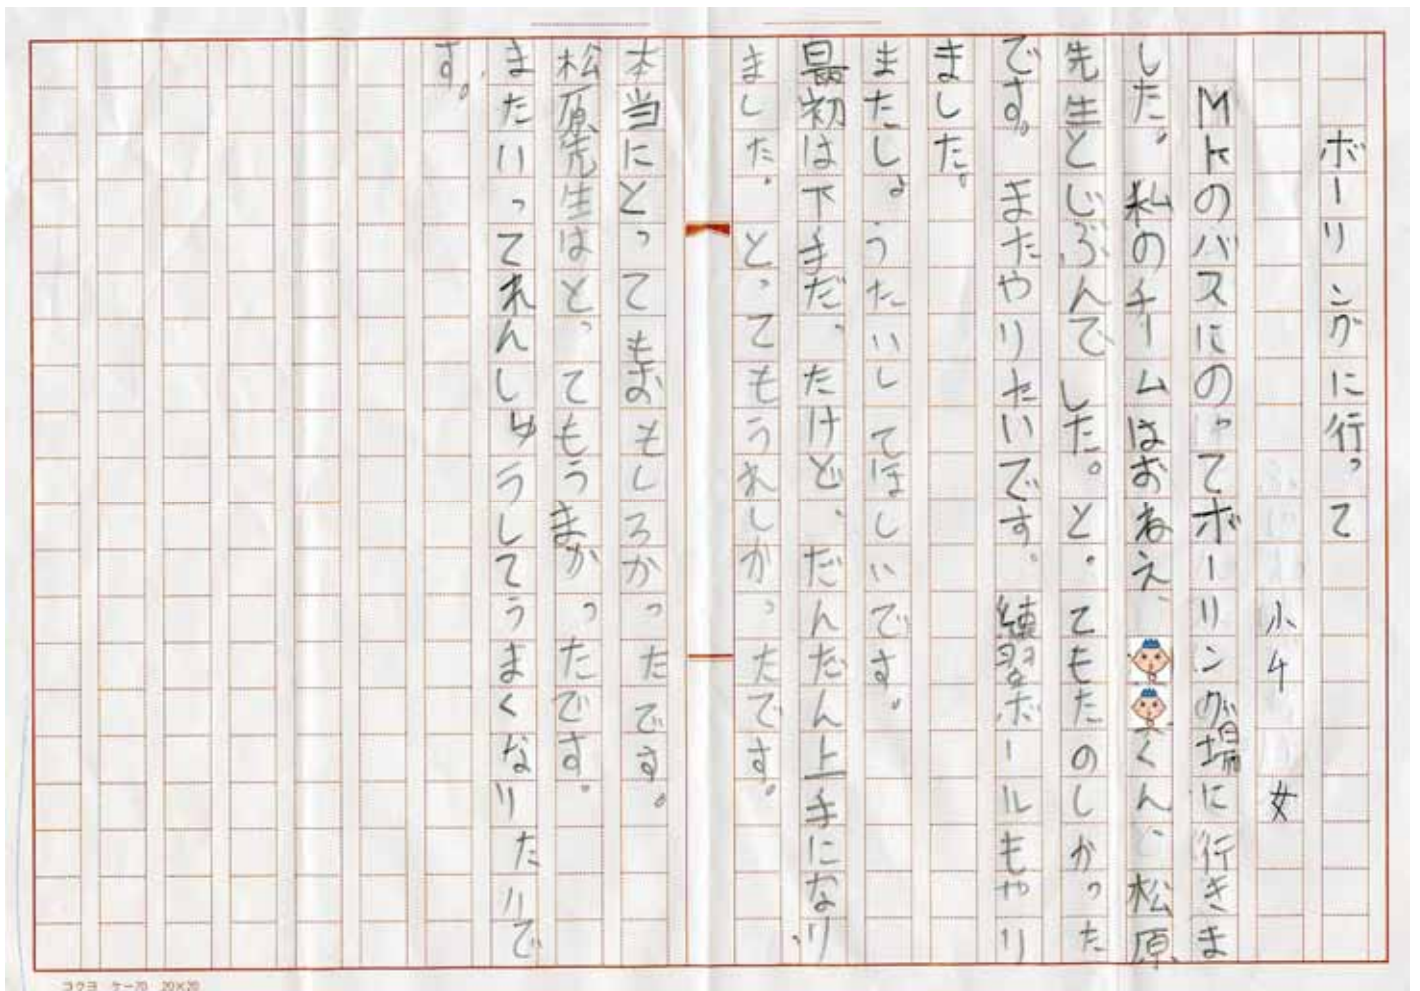 ボーリングに行って
小4 女
MKのバスにのってボーリング場に行きま
した。私のチームはおねえ、くん、松原
先生とじぶんでした。と。てもたのしかった
です。またやりたいです。練習ボールもやり
ました。
またしょうたいしてほしいです。
最初は下手だったけど、だんだん上手になり
ました。とってもうれしかったです。
本当にとってもおもしろかったです。
松原先生はとってもうまかったです。
またいってれんしゅうしてうまくなりたいで
す。
コクヨ ケー70 20×20